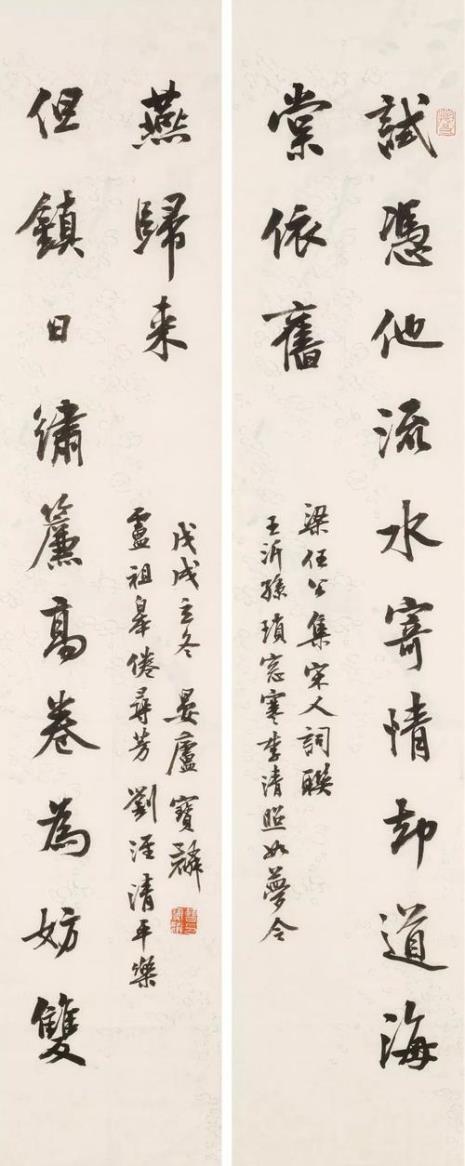 試憑他流水寄情却道海
棠依舊
梁任公集宋人詞聯
王沂孫瑣窓寒李清照如夢令
但鎮日繡簾高卷為妨雙
燕歸来
盧祖皋倦尋芳 劉涇清平樂
戊戌立冬 晏廬寶麟